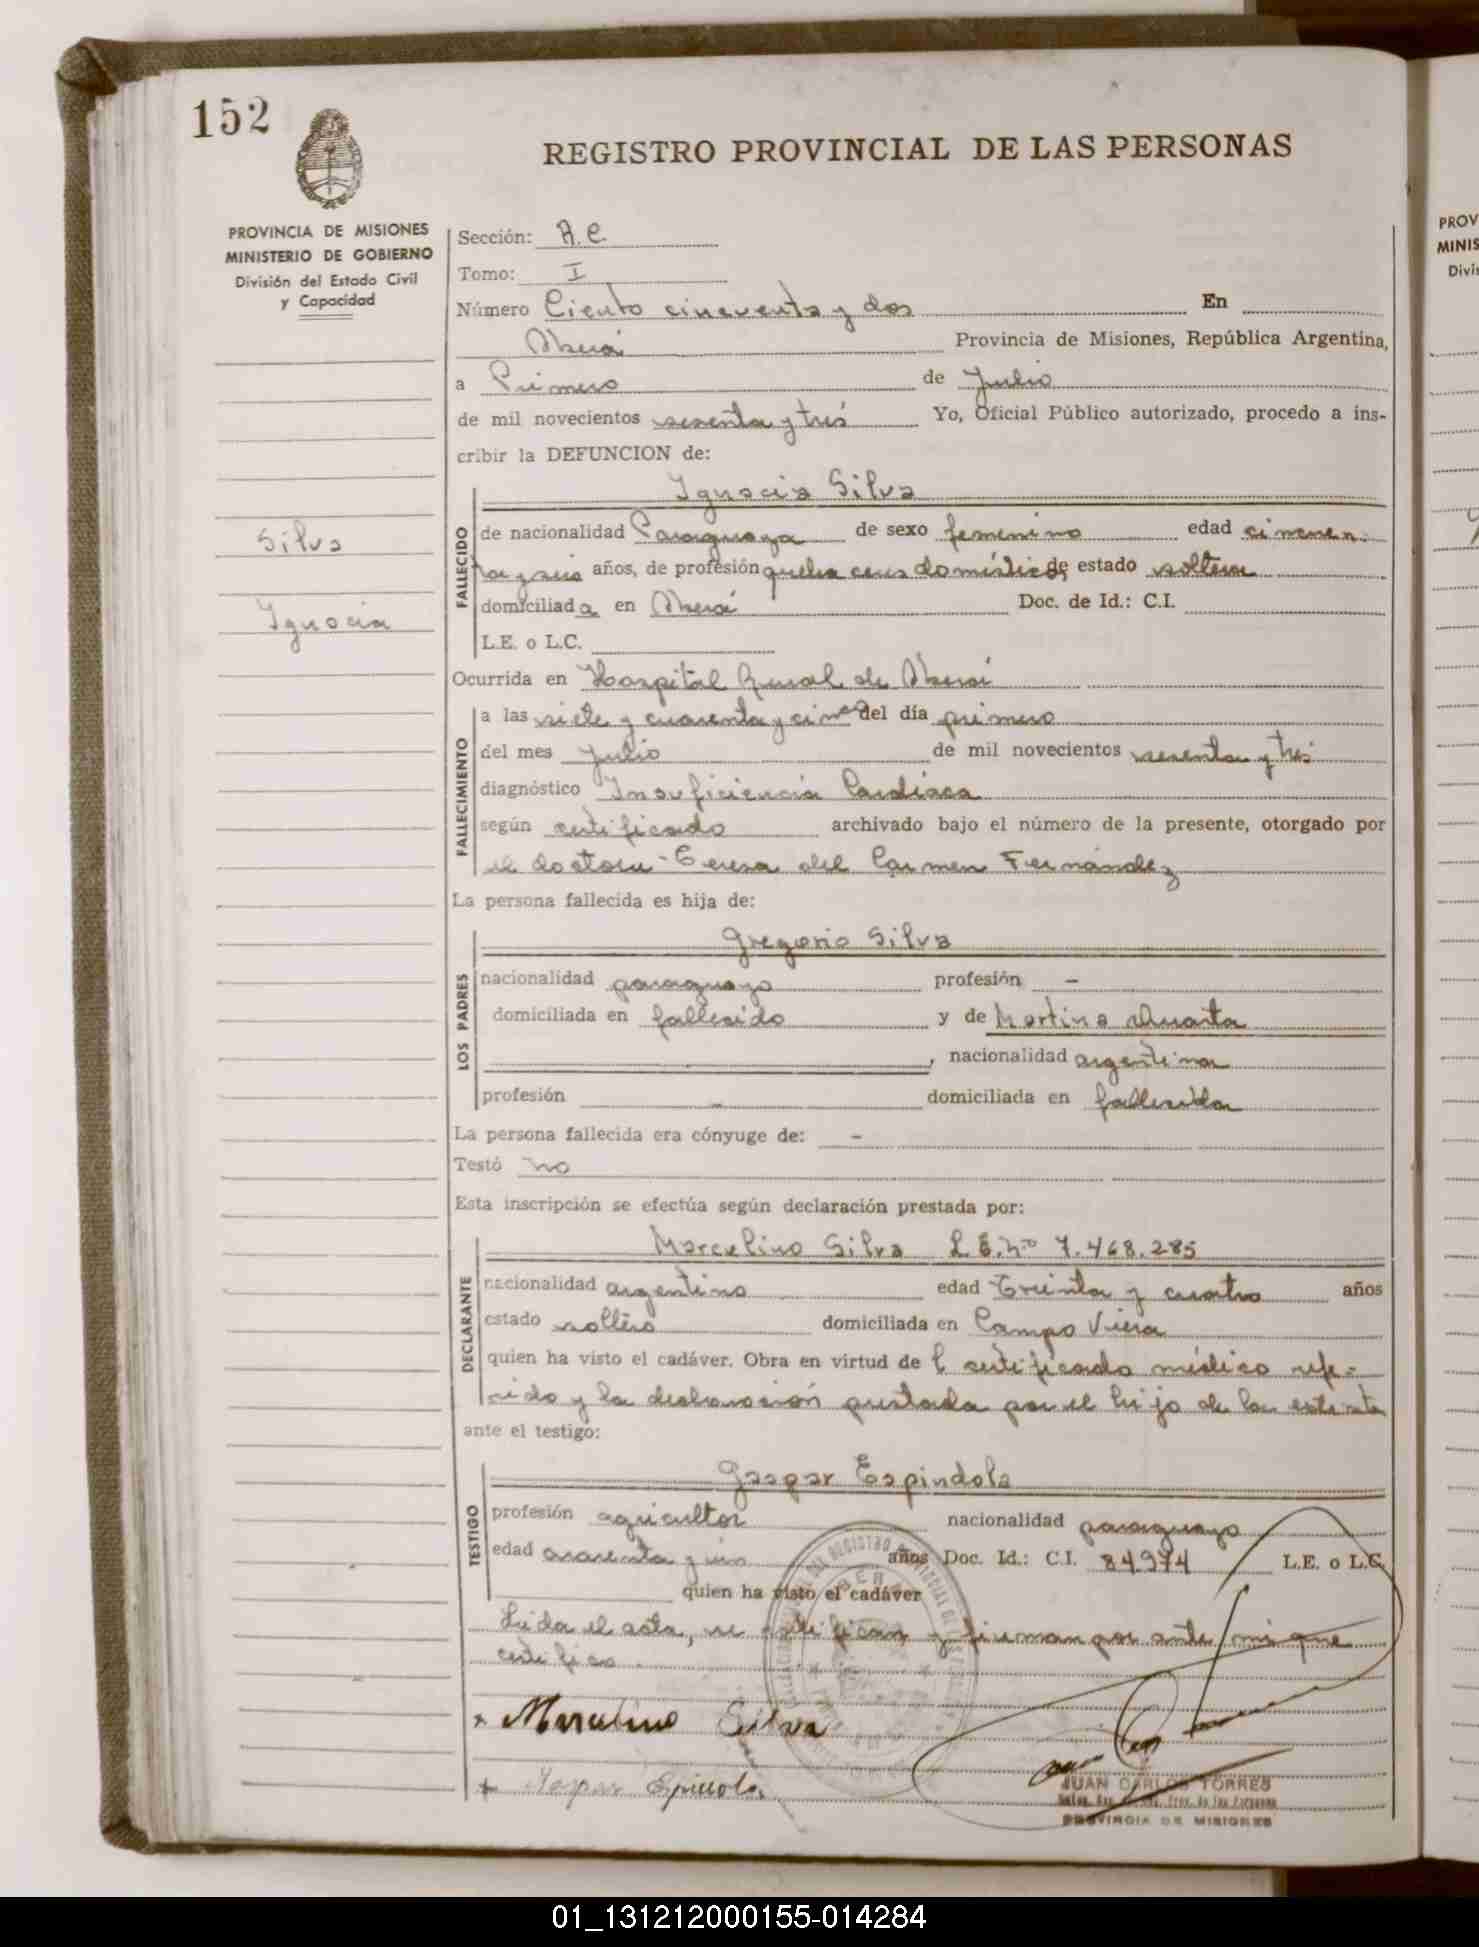 152
REGISTRO PROVINCIAL DE LAS PERSONAS
PROVINCIA DE MISIONES
MINISTERIO DE GOBIERNO
División del Estado Civil
y Capacidad
Sección: A.C.
Tomo: I
Número Ciento cincuenta y dos En
Oberá Provincia de Misiones, República Argentina,
a Primero de Julio
de mil novecientos sesenta y tres Yo, Oficial Público autorizado, procedo a ins-
cribir la DEFUNCION de:
Ignacia Silva
Silva
Ignacia
FALLECIDO
de nacionalidad Paraguaya de sexo femenino edad cincuen-
ta y seis años, de profesión domésticos de estado soltera
domiciliada en Oberá Doc. de Id.: C.I.
L.E. o L.C.
Ocurrida en Hospital Rural de Oberá
FALLECIMIENTO
a las siete y cuarenta y cinco del día primero
del mes Julio de mil novecientos sesenta y tres
diagnóstico Insuficiencia Cardíaca
según certificado archivado bajo el número de la presente, otorgado por
el doctora Teresa del Carmen Fernández
La persona fallecida es hija de:
LOS PADRES
Gregorio Silva
nacionalidad paraguayo profesión -
domiciliada en fallecido y de Martina Duarte
, nacionalidad argentina
profesión - domiciliada en fallecida
La persona fallecida era cónyuge de: -
Testó no
Esta inscripción se efectúa según declaración prestada por:
DECLARANTE
Marcelino Silva L.E. Nº 7.468.285
nacionalidad argentino edad treinta y cuatro años
estado soltero domiciliada en Campo Viera
quien ha visto el cadáver. Obra en virtud del certificado médico refe-
rido y la declaración prestada por el hijo de la extinta
ante el testigo:
TESTIGO
Gaspar Espindola
profesión agricultor nacionalidad paraguayo
edad cuarenta y años Doc. Id.: C.I. 84974 L.E. o L.C.
quien ha visto el cadáver
Leída el acta, se ratifican y firman por ante mí que
certifico.
x Marcelino Silva
x Gaspar
JUAN CARLOS TORRES
PROVINCIA DE MISIONES
PROV
MINIS
Divi
01_131212000155-014284